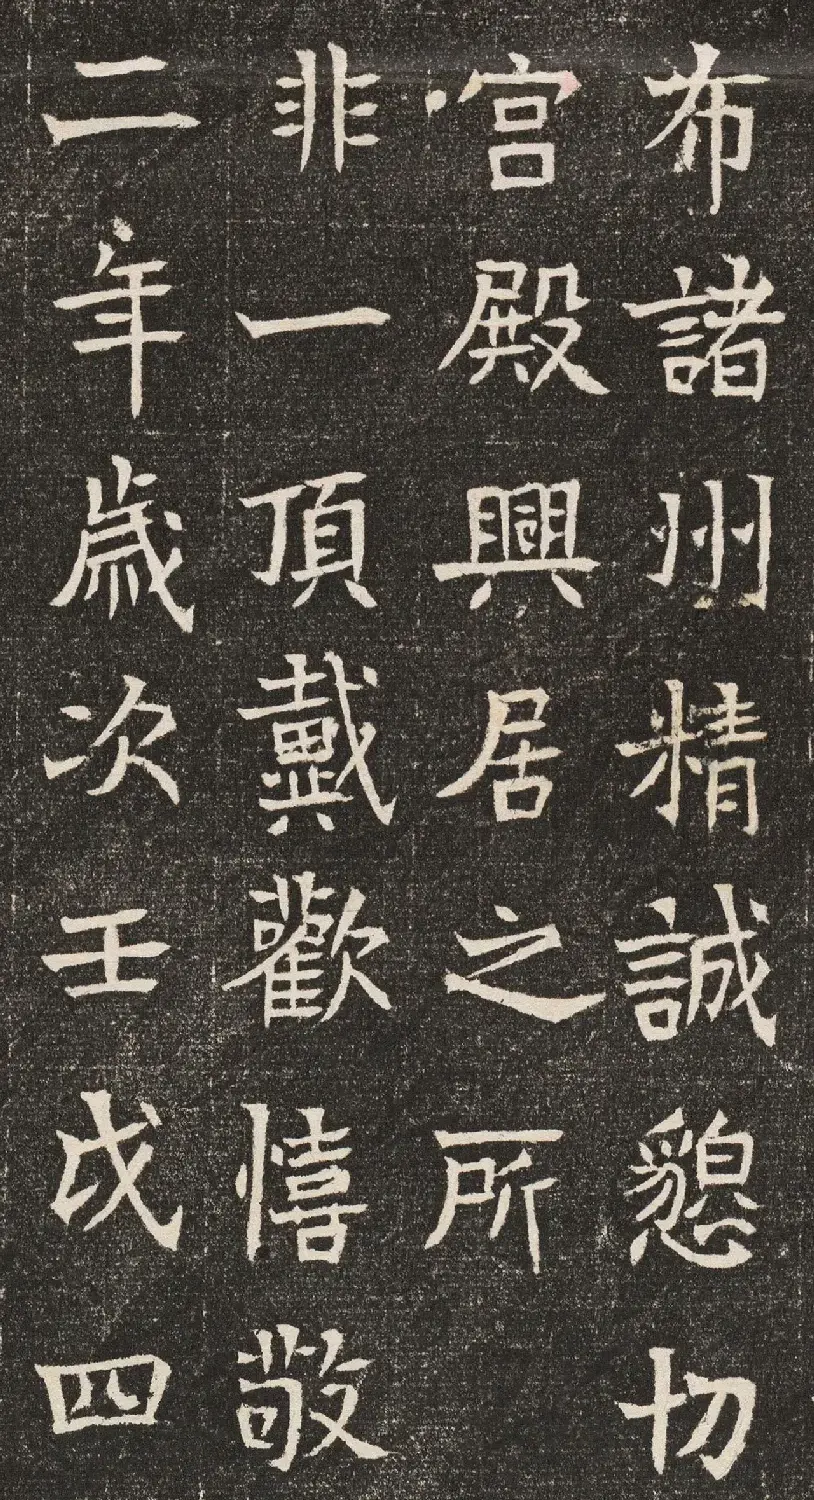 布諸州精誠懇切
宮殿興居之所
非一頂戴歡憘敬
二年歲次壬戌四